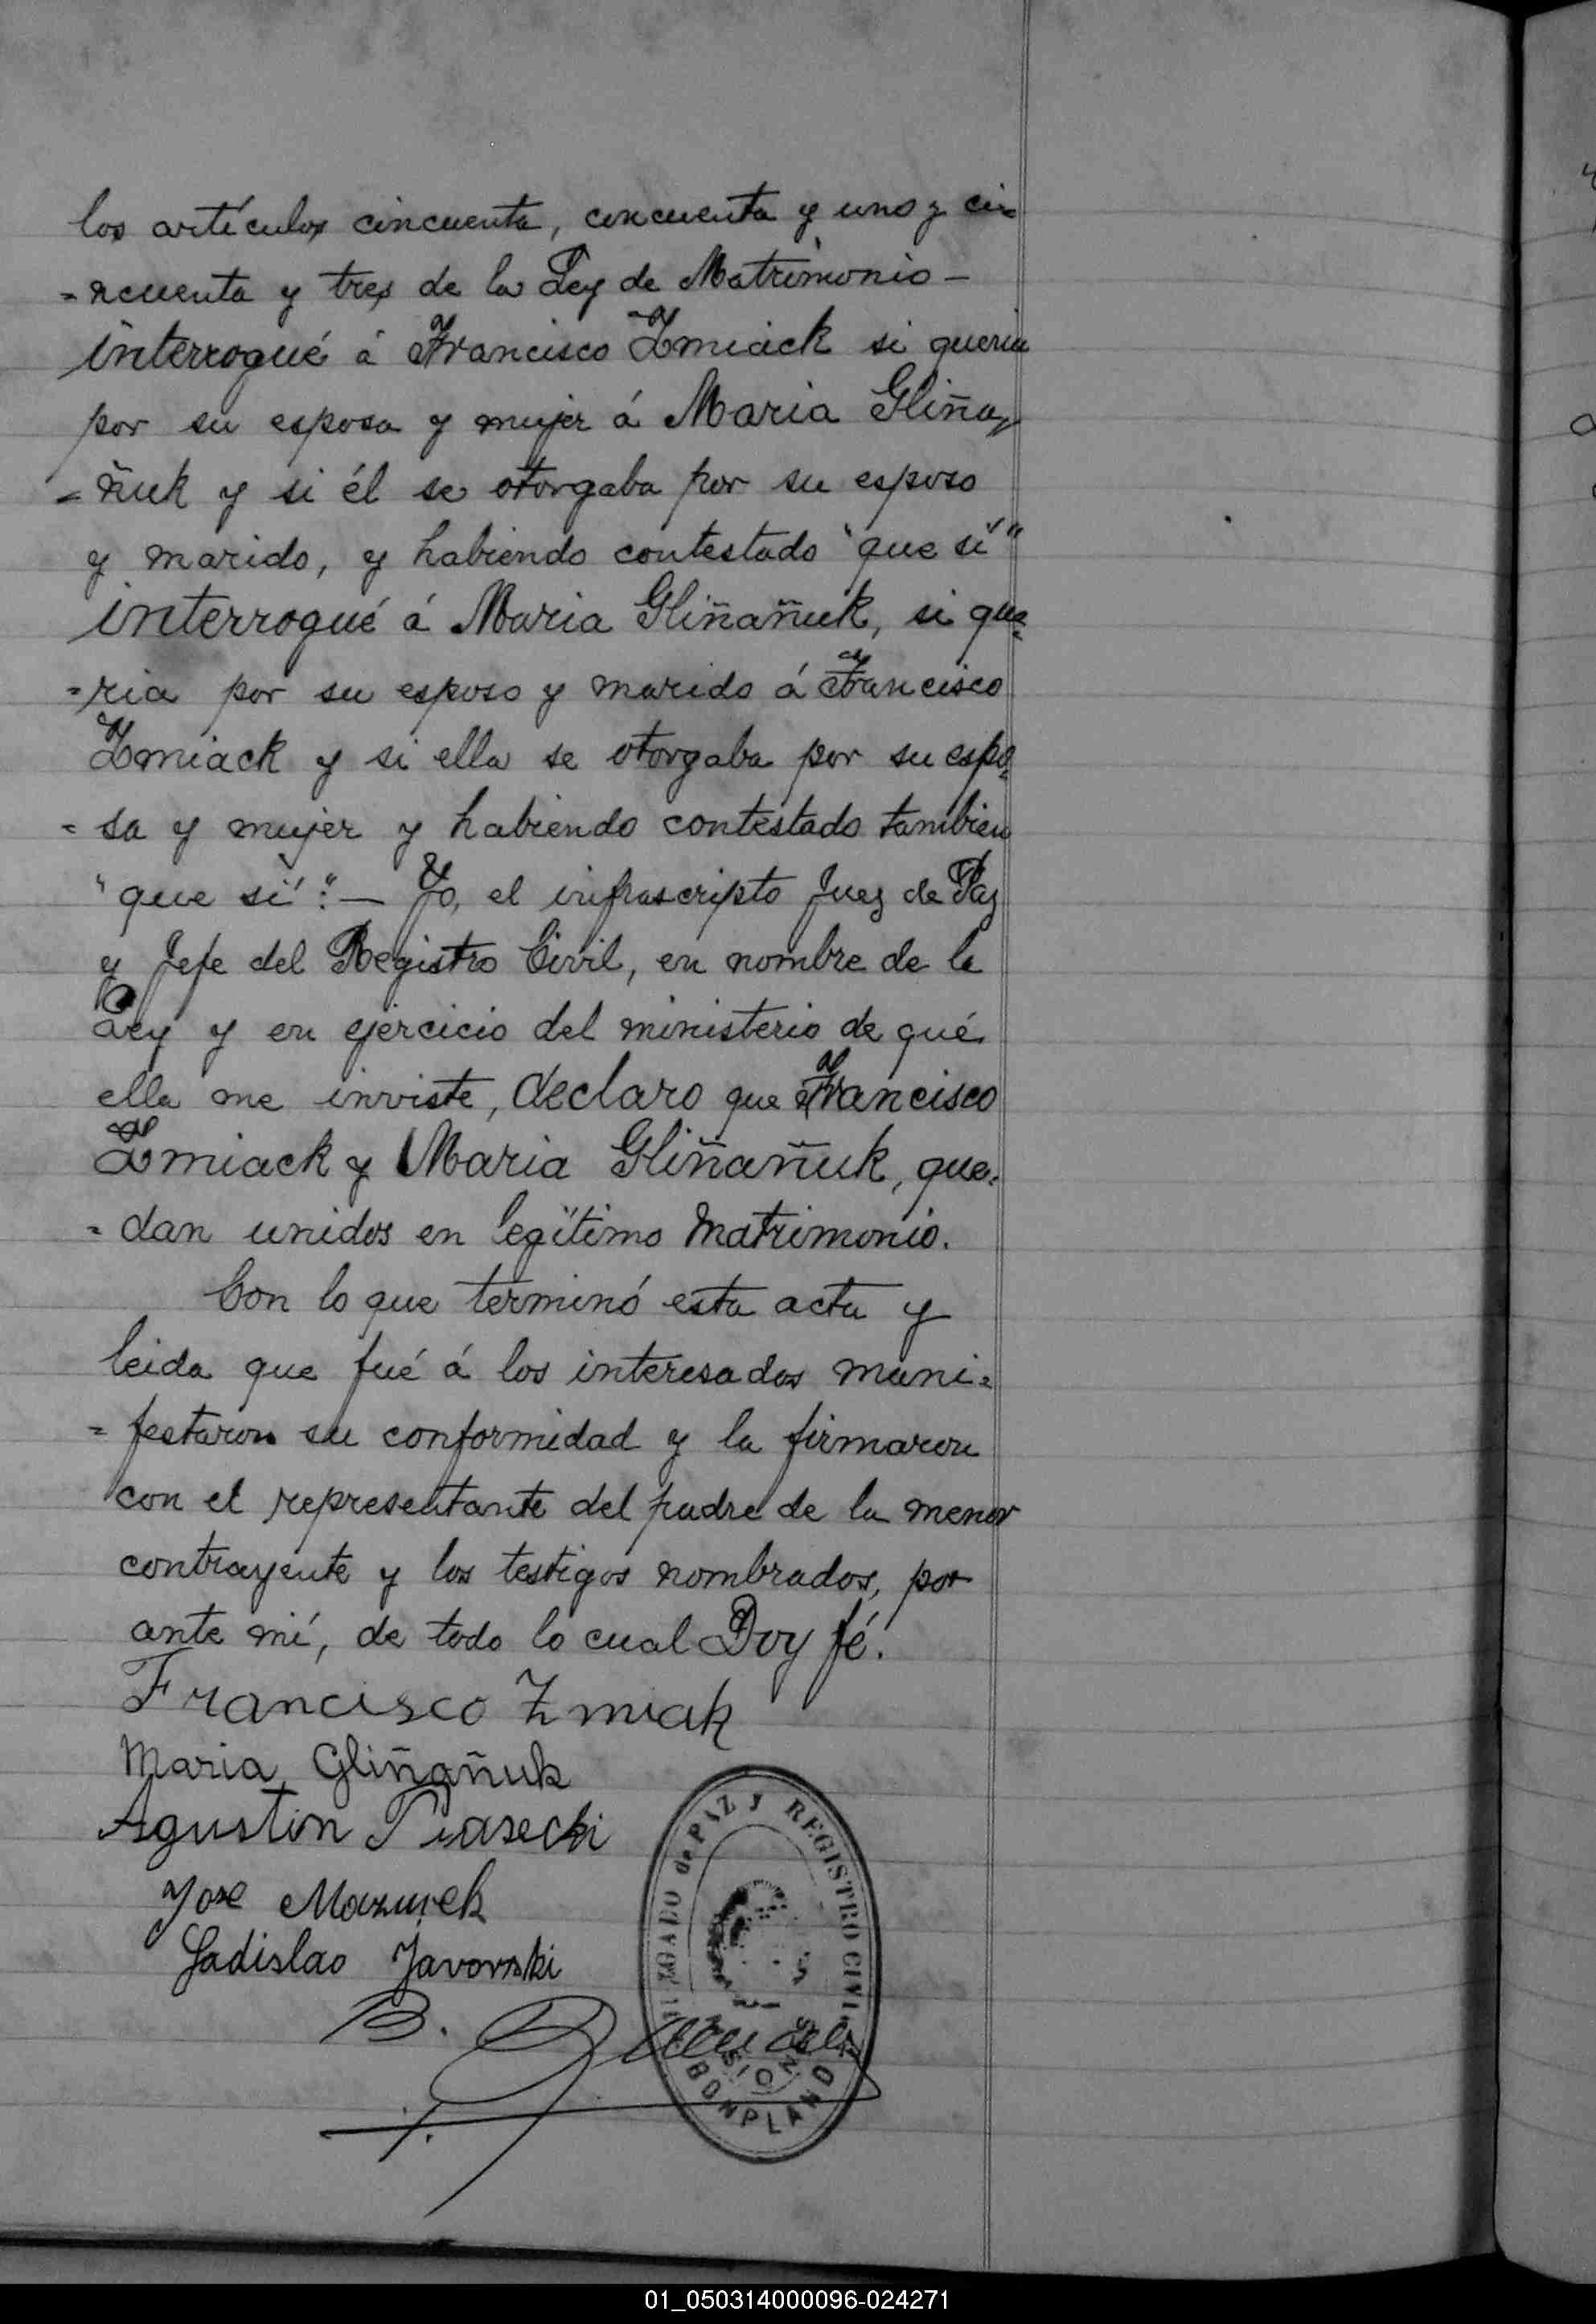 los artículos cincuenta, cincuenta y uno y cin
=ncuenta y tres de la Ley de Matrimonio -
interrogué á Francisco Zmiack si queria
por su esposa y mujer á Maria Gliña,,
=ñuk y si él se otorgaba por su esposo
y marido, y habiendo contestado "que sí"
interrogué á Maria Gliñañuk, si que=
=ria por su esposo y marido á Francisco
Zmiack y si ella se otorgaba por su espo=
=sa y mujer y habiendo contestado tambien
"que sí":- Yo, el infrascripto Juez de Paz
y Jefe del Registro Civil, en nombre de la
Ley y en ejercicio del ministerio de qué
ella me inviste, declaro que Francisco
Zmiack y Maria Gliñañuk, que=
=dan unidos en legítimo Matrimonio.
Con lo que terminó esta acta y
leida que fué á los interesados mani=
=festaron su conformidad y la firmaron
con el representante del padre de la menor
contrayente y los testigos nombrados, por
ante mí, de todo lo cual Doy fé.
Francisco Zmiak
Maria Gliñañuk
Agustin Piasecki
Jose Mazurek
Ladislao Javorski
B.
JUZGADO de PAZ y REGISTRO CIVIL
MISIONES
BONPLAND
01_050314000096-024271